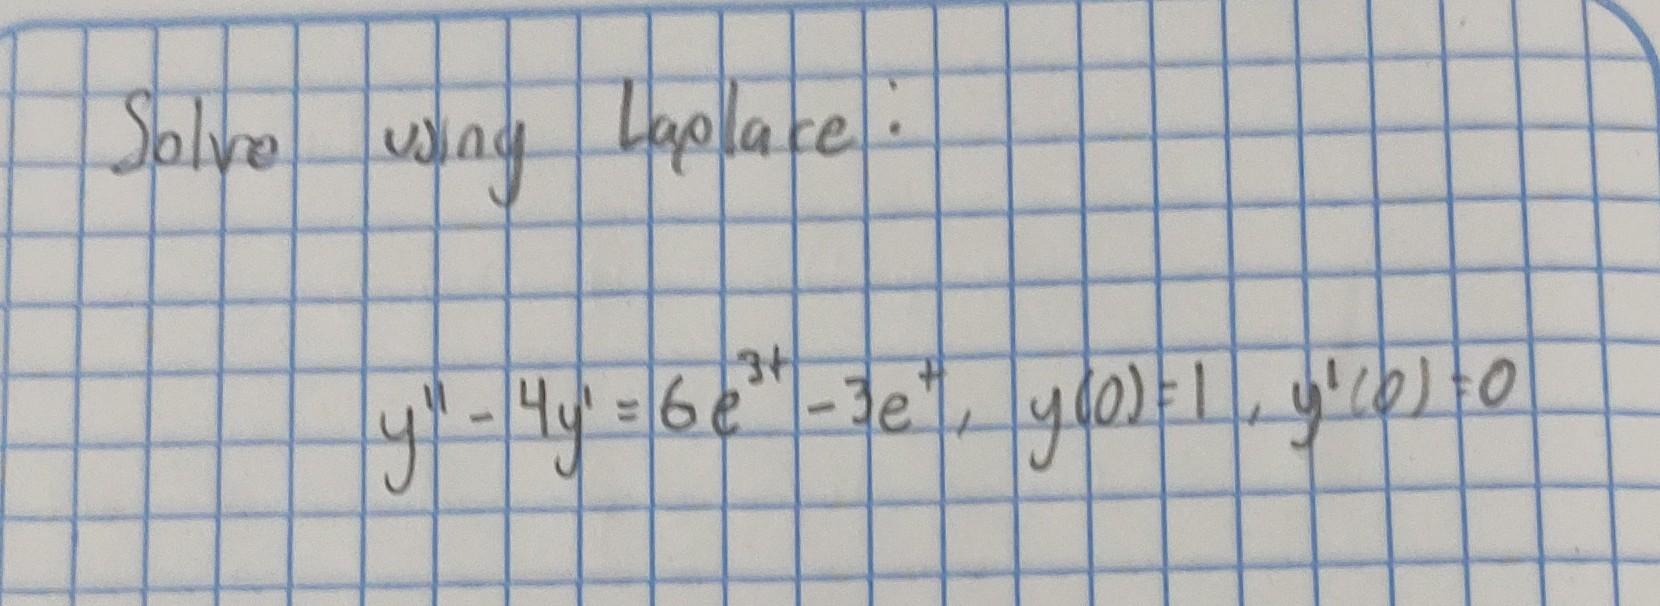 Solve using Laplace:
y'' - 4y' = 6e^{3t} - 3e^{t}, y(0)=1, y'(0)=0